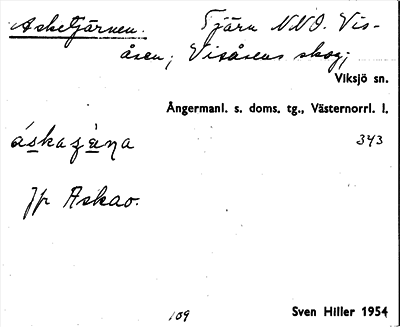 Asketjärnen. Tjärn N.N.O. Vis-
åsen; Visåsens skog;
Viksjö sn.
Ångermanl. s. doms. tg., Västernorrl. l.
343
Jfr Askao.
109 Sven Hiller 1954